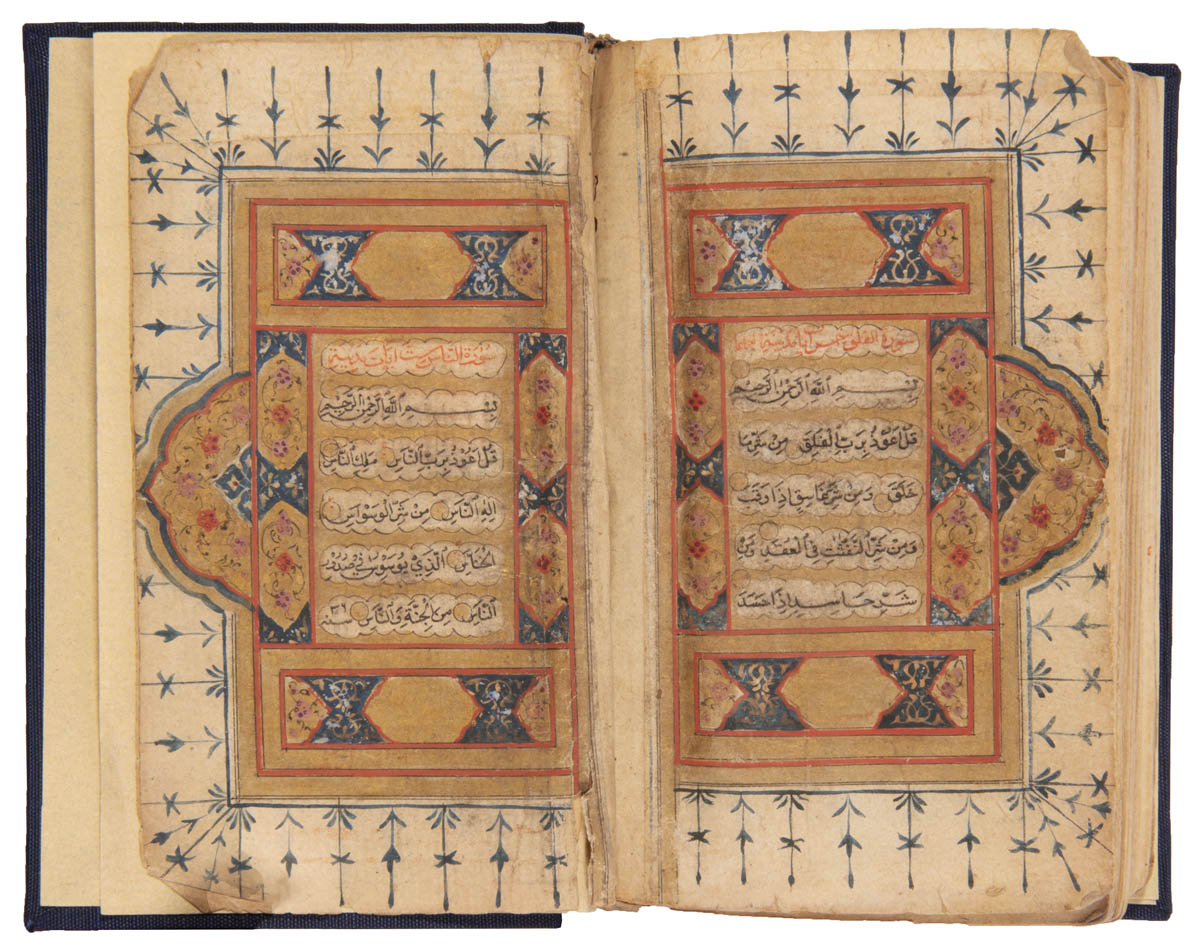 سورة الفلق خمس آيات مدنية
بِسْمِ اللهِ الرَّحْمٰنِ الرَّحِيْمِ
قُلْ اَعُوْذُ بِرَبِّ الْفَلَقِ مِنْ شَرِّ مَا
خَلَقَ وَمِنْ شَرِّ غَاسِقٍ اِذَا وَقَبَ
وَمِنْ شَرِّ النَّفّٰثٰتِ فِي الْعُقَدِ وَمِنْ
شَرِّ حَاسِدٍ اِذَا حَسَدَ
سورة الناس ست آيات مدنية
بِسْمِ اللهِ الرَّحْمٰنِ الرَّحِيْمِ
قُلْ اَعُوْذُ بِرَبِّ النَّاسِ مَلِكِ النَّاسِ
اِلٰهِ النَّاسِ مِنْ شَرِّ الْوَسْوَاسِ
الْخَنَّاسِ الَّذِيْ يُوَسْوِسُ فِيْ صُدُوْرِ
النَّاسِ مِنَ الْجِنَّةِ وَالنَّاسِ سنه